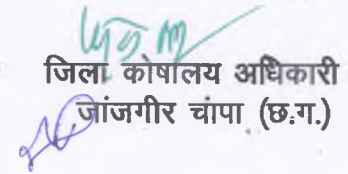 जिला कोषालय अधिकारी
जांजगीर चांपा (छ.ग.)